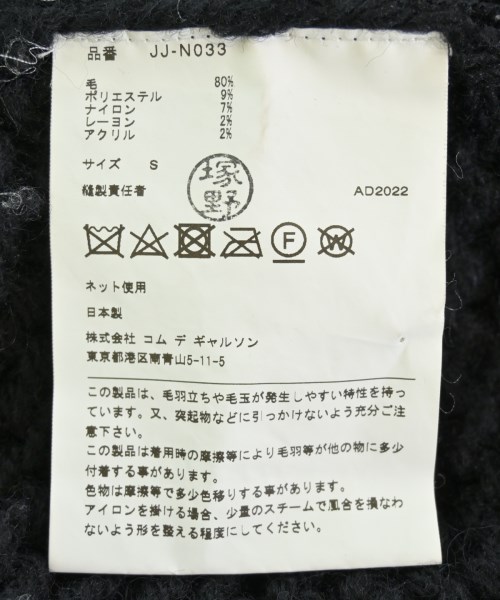 品番 JJ-N033
毛 80%
ポリエステル 9%
ナイロン 7%
レーヨン 2%
アクリル 2%
サイズ S
縫製責任者 塚野 AD2022
F W
ネット使用
日本製
株式会社 コム デ ギャルソン
東京都港区南青山5-11-5
この製品は、毛羽立ちや毛玉が発生しやすい特性を持っ
ています。又、突起物などに引っかけないよう充分ご注
意下さい。
この製品は着用時の摩擦等により毛羽等が他の物に多少
付着する事があります。
色物は摩擦等で多少色移りする事があります。
アイロンを掛ける場合、少量のスチームで風合を損なわ
ないよう形を整える程度にしてください。